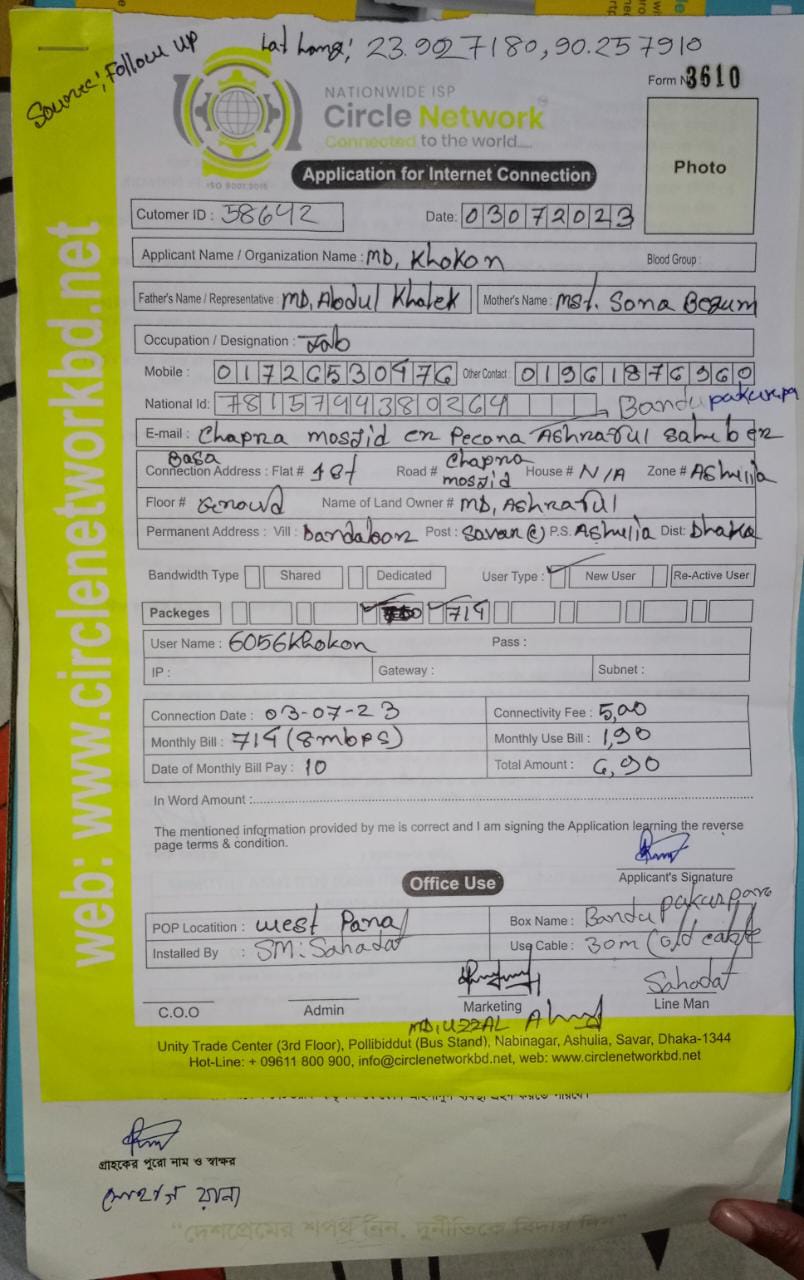 Lat Long: 23.9027180,90.257910
Source: Follow up
Form N 3610
NATIONWIDE ISP
Circle Network
Connected to the world....
ISO 9001:2015
Application for Internet Connection
Photo
Cutomer ID : 58642 Date: 03072023
Applicant Name / Organization Name : MD, Khokon Blood Group :
Father's Name / Representative : MD, Abdul Khalek Mother's Name : Mst. Sona Begum
Occupation / Designation : Job
Mobile : 01726530476 Other Contact : 01961876960
National Id: 7815794380264 Bandu pakurpa
E-mail : Chapra mosjid er Pecona Ashraful saheber
Basa
Connection Address : Flat # 1st Road # Chapra mosjid House # N/A Zone # Ashulia
Floor # Ground Name of Land Owner # MD, Ashraful
Permanent Address : Vill : Dandabor Post : Savar (C) P.S. Ashulia Dist: Dhaka
Bandwidth Type Shared Dedicated User Type : New User Re-Active User
Packeges 714
User Name : 6056Khokon Pass :
IP : Gateway : Subnet :
Connection Date : 03-07-23 Connectivity Fee : 5,00
Monthly Bill : 714 (8mbps) Monthly Use Bill : 1,90
Date of Monthly Bill Pay : 10 Total Amount : 6,90
In Word Amount :
The mentioned information provided by me is correct and I am signing the Application learning the reverse
page terms & condition.
Applicant's Signature
Office Use
POP Locatition : west Para Box Name : Bandu pakurpara
Installed By : SM: Sahadat Use Cable : 30m (old cable
Sahadat
C.O.O Admin Marketing Line Man
MD, UZZAL Ahmed
Unity Trade Center (3rd Floor), Pollibiddut (Bus Stand), Nabinagar, Ashulia, Savar, Dhaka-1344
Hot-Line: + 09611 800 900, info@circlenetworkbd.net, web: www.circlenetworkbd.net
web: www.circlenetworkbd.net
গ্রাহকের পুরো নাম ও স্বাক্ষর
সোহাগ রানা
"দেশপ্রেমের শপথ নিন, দুর্নীতিকে বিদায় দিন"